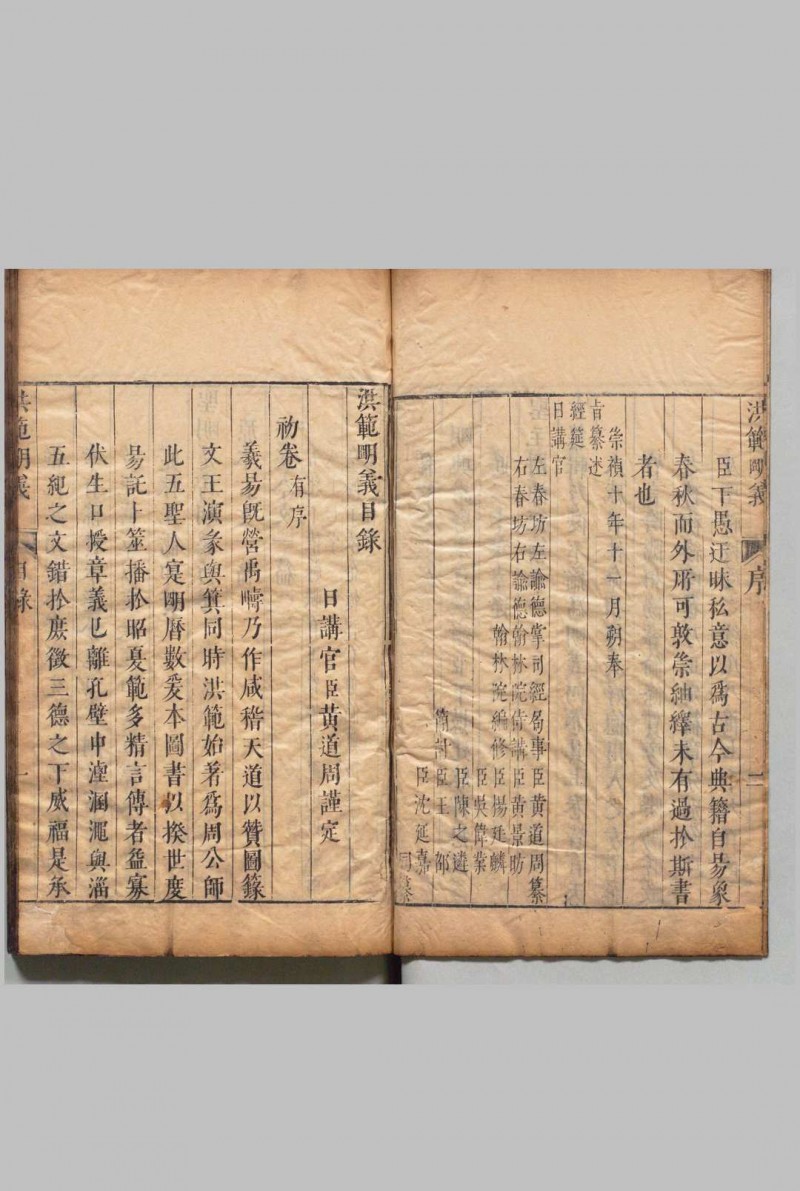 洪範明義
序
二
臣下愚迂昧私意以為古今典籍自易象
春秋而外所可敦崇紬繹未有過於斯書
者也
崇禎十年十一月朔奉
旨纂述
經筵
日講官
左春坊左諭德掌司經局事臣黃道周纂
右春坊右諭德翰林院侍講臣黃景昉
翰林院編修臣楊廷麟
臣吳偉業
臣陳之遴
簡討臣王鄰
臣沈延嘉
同纂
洪範明義目錄
日講官臣黃道周謹定
初卷有序
羲易旣營禹疇乃作咸稽天道以贊圖籙
文王演彖與箕同時洪範始著為周公師
此五聖人寔明曆數爰本圖書以揆世度
易託卜筮播於昭夏範多精言傳者益寡
伏生口授章義已離孔壁中湮澠與淄
五紀之文錯於庶徵三德之下威福是承
洪範明義
目錄
一